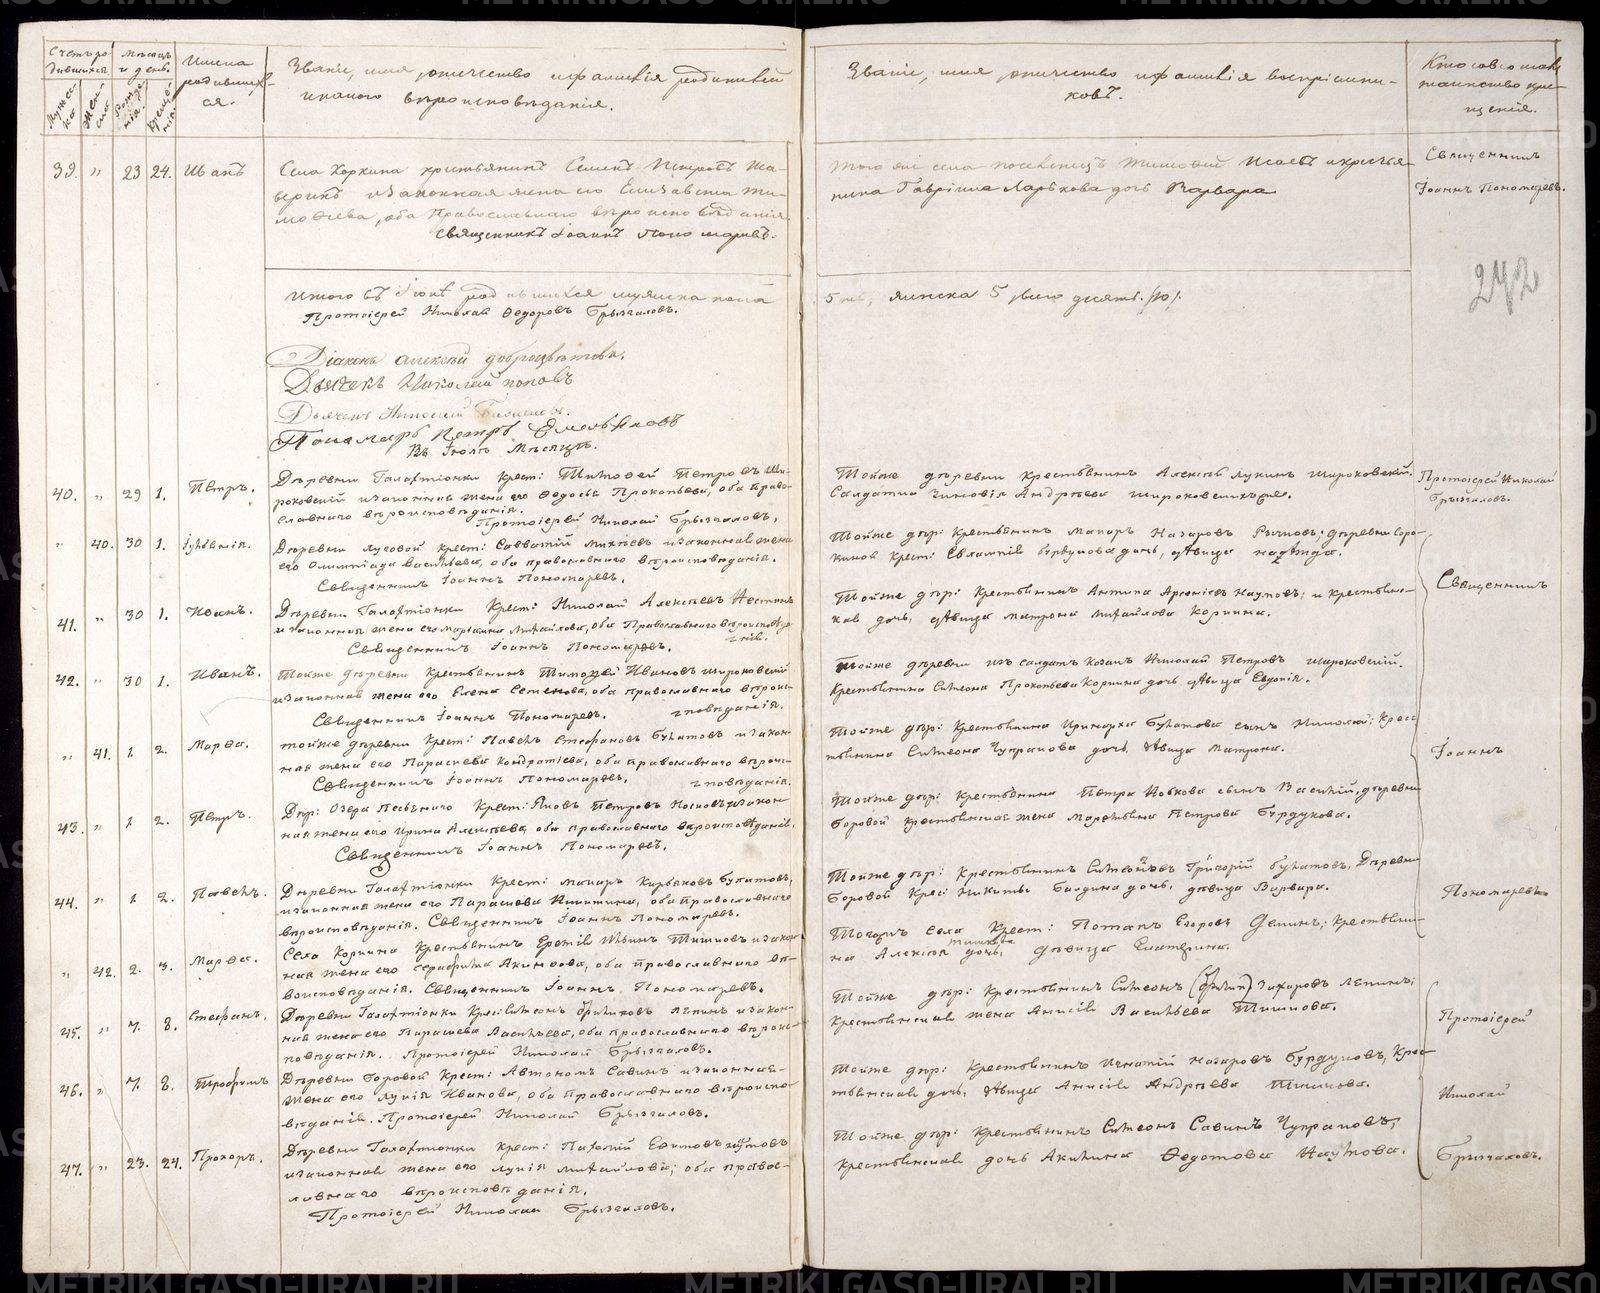 Счетъ ро-
дившихся.
Мѣсяцъ
и день.
Имена
родивших-
ся.
Званіе, имя, отчество и фамилія родителей
и какого вѣроисповѣданія.
Званіе, имя, отчество и фамилія воспріемни-
ковъ.
Кто совершалъ
таинство кре-
щенія.
39. " 23 24. Иванъ
Села Коркина крестьянинъ Петровъ
и законная жена его Елизавета Ти-
моѳеева, оба Православнаго вѣроисповѣданія.
Священникъ Іоаннъ Пономаревъ.
того же села Тимоѳей Исаевъ и крестья-
нина Гавріила дочь Варвара
Священникъ
Іоаннъ Пономаревъ.
242
Итого въ Іюнѣ родившихся мужеска пола
5ть, женска 5 всего десять /10/.
Протоіерей Николай Ѳедоровъ Брызгаловъ.
Діаконъ Алексѣй Доброцвѣтовъ.
Дьячекъ Николай Поповъ
Дьячекъ Николай
Пономарь Петръ Емельяновъ
Въ Іюлѣ Мѣсяцѣ.
40. " 29 1. Петръ.
Деревни Галактіонки Крест: Тимофей Петровъ Ши-
роковскій и законная жена его Ѳедосья Прокопьева, оба Право-
славнаго вѣроисповѣданія.
Протоіерей Николай Брызгаловъ.
Тойже деревни крестьянинъ Алексѣй Лукинъ Широковскій.
Солдатка Зиновія Андрѣева
Протоіерей Николай
Брызгаловъ.
" 40. 30 1. Іуліанія.
Деревни Луговой крест: Савватій и законная жена
его Олимпіада Васильева, оба православнаго вѣроисповѣданія.
Священникъ Іоаннъ Пономаревъ.
Тойже дер: Крестьянинъ Макаръ Назаровъ деревни Соро-
киной крест: Евлампія Бурдукова дочь, дѣвица надежда.
41. " 30 1. Иванъ.
Деревни Галактіонки Крест: Николай Алексѣевъ
и законная жена его Маріамна Михайлова, оба Православнаго вѣроисповѣда-
нія.
Священникъ Іоаннъ Пономаревъ.
Тойже дер: Крестьянинъ Антипа Арсеніевъ Наумовъ; и крестьянс-
кая дочь, дѣвица Матрона Михайлова Коркина.
42. " 30 1. Иванъ.
Тойже деревни Крестьянинъ Тимофей Ивановъ Широковскій
и законная жена его Елена Семенова, оба православнаго вѣрои-
сповѣданія.
Священникъ Іоаннъ Пономаревъ.
Тойже деревни изъ солдатъ Николай Петровъ Широковскій.
Крестьянина Симеона Прокопьева Коркина дочь дѣвица Евдокія.
" 41. 1 2. Марѳа.
тойже деревни Крест: Павелъ Стефановъ Булатовъ и закон-
ная жена его Параскева Кондратіева, оба православнаго вѣрои-
сповѣданія.
Священникъ Іоаннъ Пономаревъ.
Тойже дер: Крестьянина Иринарха Булатова сынъ Николай; Крес-
тьянина Симеона Чупракова дочь, дѣвица Матрона.
43. " 1 2. Петръ.
Дер: Озера Песьянаго Крест: Яковъ Петровъ Носковъ и закон-
ная жена его Ирина Алексѣева оба православнаго вѣроисповѣданія.
Священникъ Іоаннъ Пономаревъ.
Тойже дер: Крестьянина Петра Носкова сынъ Василій, деревни
Боровой Крестьянская жена Марѳа Петрова Бурдукова.
44. " 1 2. Павелъ.
Деревни Галактіонки Крест: Макаръ Булатовъ,
и законная жена его Параскева Никитина, оба православнаго
вѣроисповѣданія. Священникъ Іоаннъ Пономаревъ.
Тойже дер: Крестьянинъ Григорій Булатовъ, Деревни
Боровой Крес: Никиты дочь, дѣвица Варвара.
" 42. 2. 3. Марѳа.
Села Коркина Крестьянинъ Ильинъ Тишковъ и закон-
ная жена его Серафима Акинфова, оба православнаго вѣ-
роисповѣданія. Священникъ Іоаннъ Пономаревъ.
Тогожъ села Крест: Потапъ Егоровъ Деминъ; Крестьяни-
на Алексѣя Тишкова дочь, дѣвица Екатерина.
Священникъ
Іоаннъ
Пономаревъ
45. " 7. 8. Стефанъ.
Деревни Галактіонки Крес: Симеонъ и закон-
ная жена его Параскева Васильева, оба православнаго вѣроис-
повѣданія. Протоіерей Николай Брызгаловъ.
Тойже дер: Крестьянинъ Симеонъ Захаровъ
Крестьянская жена Анисія Васильева Тишкова.
46. " 7. 8. Трофимъ
Деревни Боровой Крест: Автономъ Савинъ и законная
жена его Лукія Иванова, оба православнаго вѣроиспо-
вѣданія. Протоіерей Николай Брызгаловъ.
Тойже дер: Крестьянинъ Игнатій Назаровъ Бурдуковъ, Крес-
тьянская дочь, дѣвица Анисія Андрѣева Тишкова.
47. " 23. 24. Прохоръ.
Деревни Галактіонки Крест: Ефимовъ
и законная жена его Лукія Михайлова; оба правос-
лавнаго вѣроисповѣданія.
Протоіерей Николай Брызгаловъ.
Тойже дер: Крестьянинъ Симеонъ Савинъ Чупраковъ;
Крестьянская дочь Акилина Ѳедотова Наумова.
Протоіерей
Николай
Брызгаловъ.
METRIKI.GASO-URAL.RU